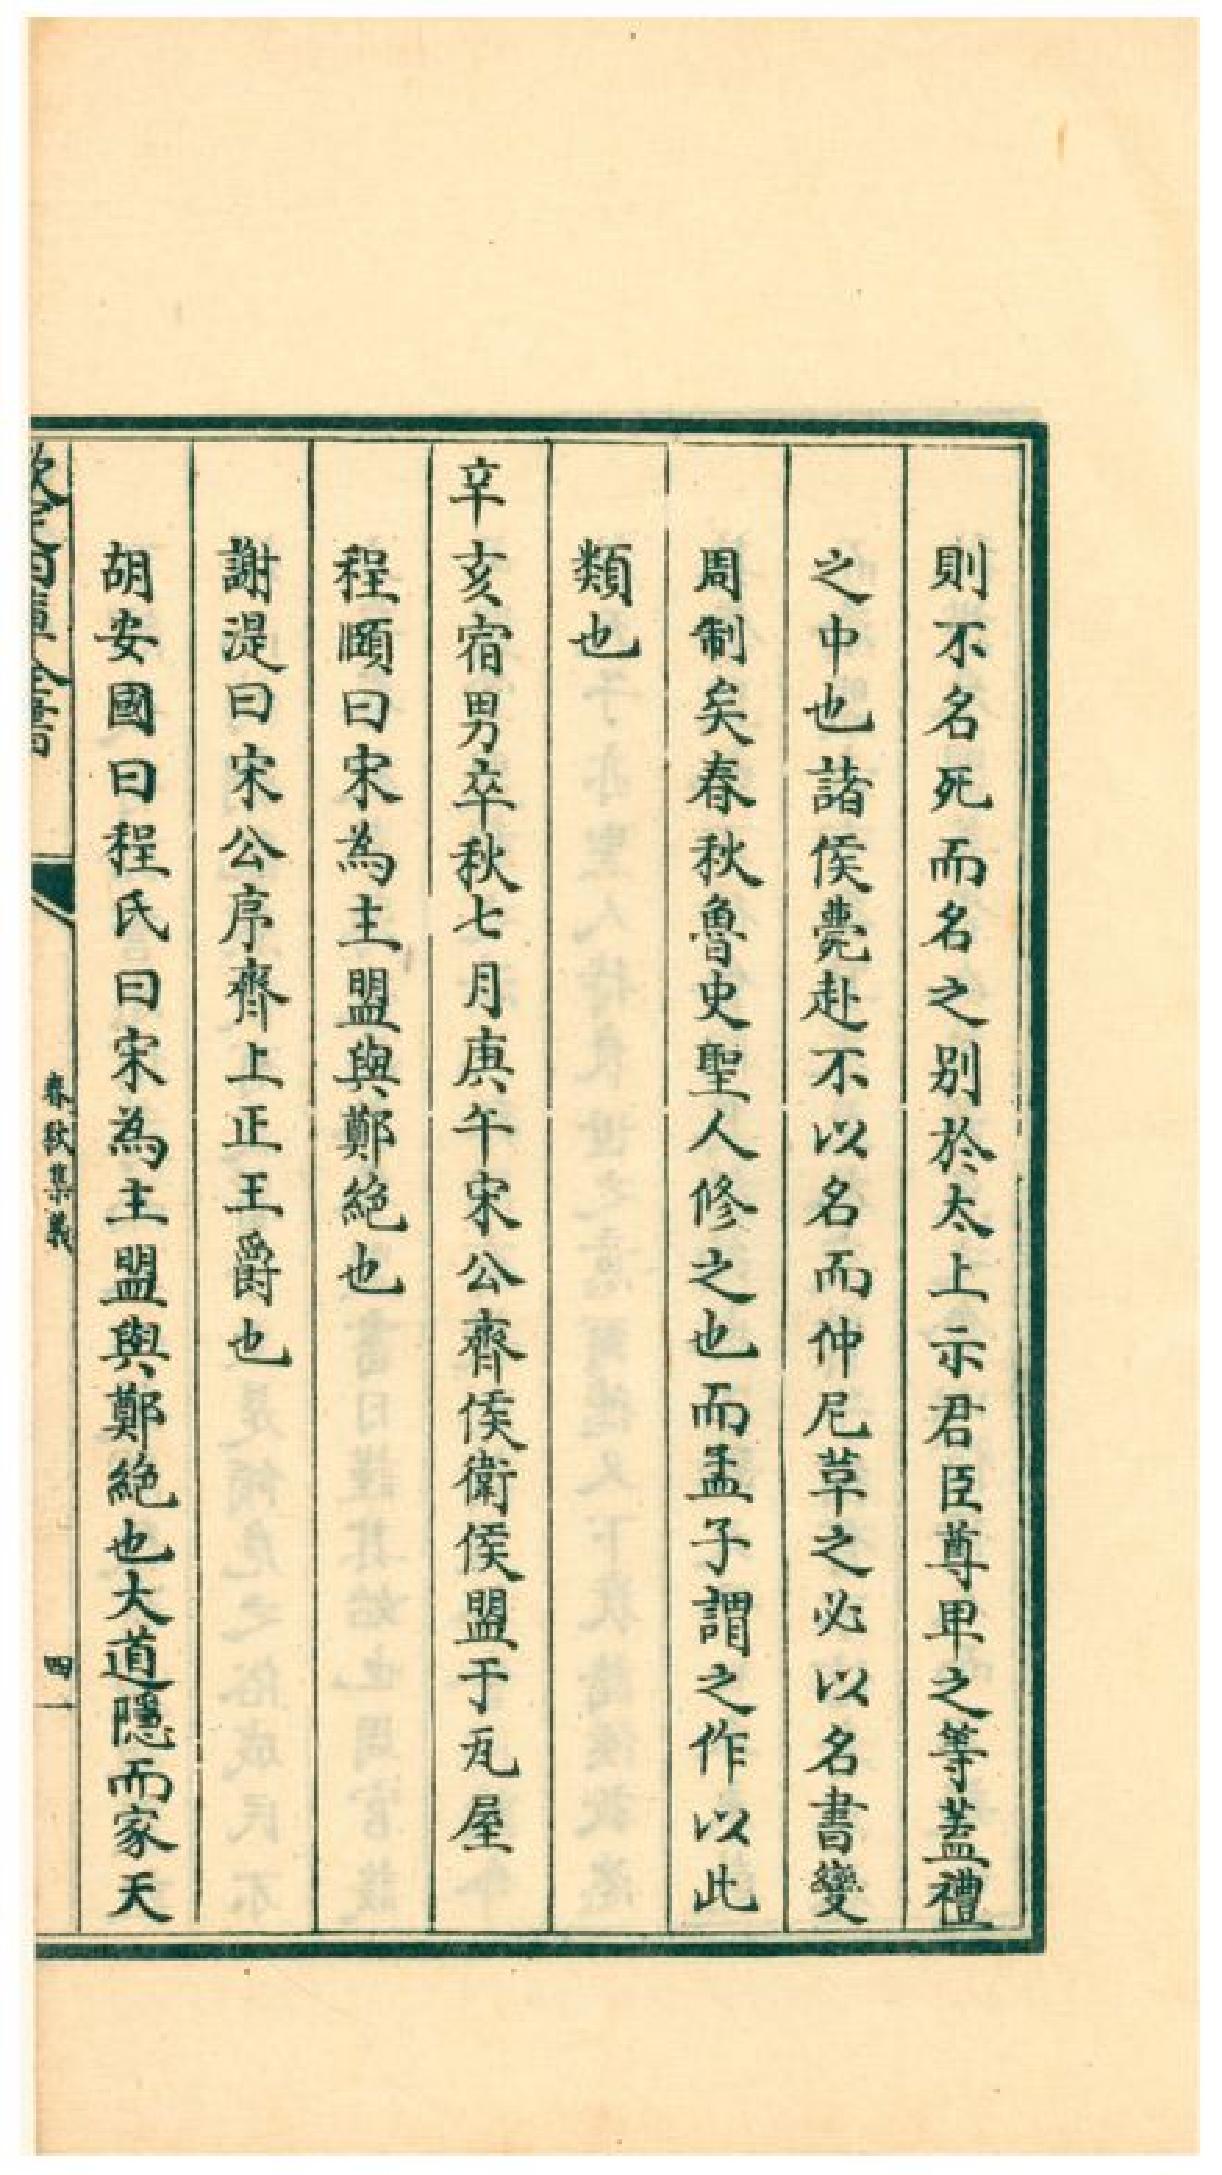 則不名死而名之别於太上示君臣尊卑之等蓋禮
之中也諸侯薨赴不以名而仲尼革之必以名書變
周制矣春秋魯史聖人修之也而孟子謂之作以此
類也
辛亥宿男卒秋七月庚午宋公齊侯衛侯盟于瓦屋
程頤曰宋為主盟與鄭絶也
謝湜曰宋公序齊上正王爵也
胡安國曰程氏曰宋為主盟與鄭絶也大道隱而家天
欽定四庫全書
春秋集義
四一